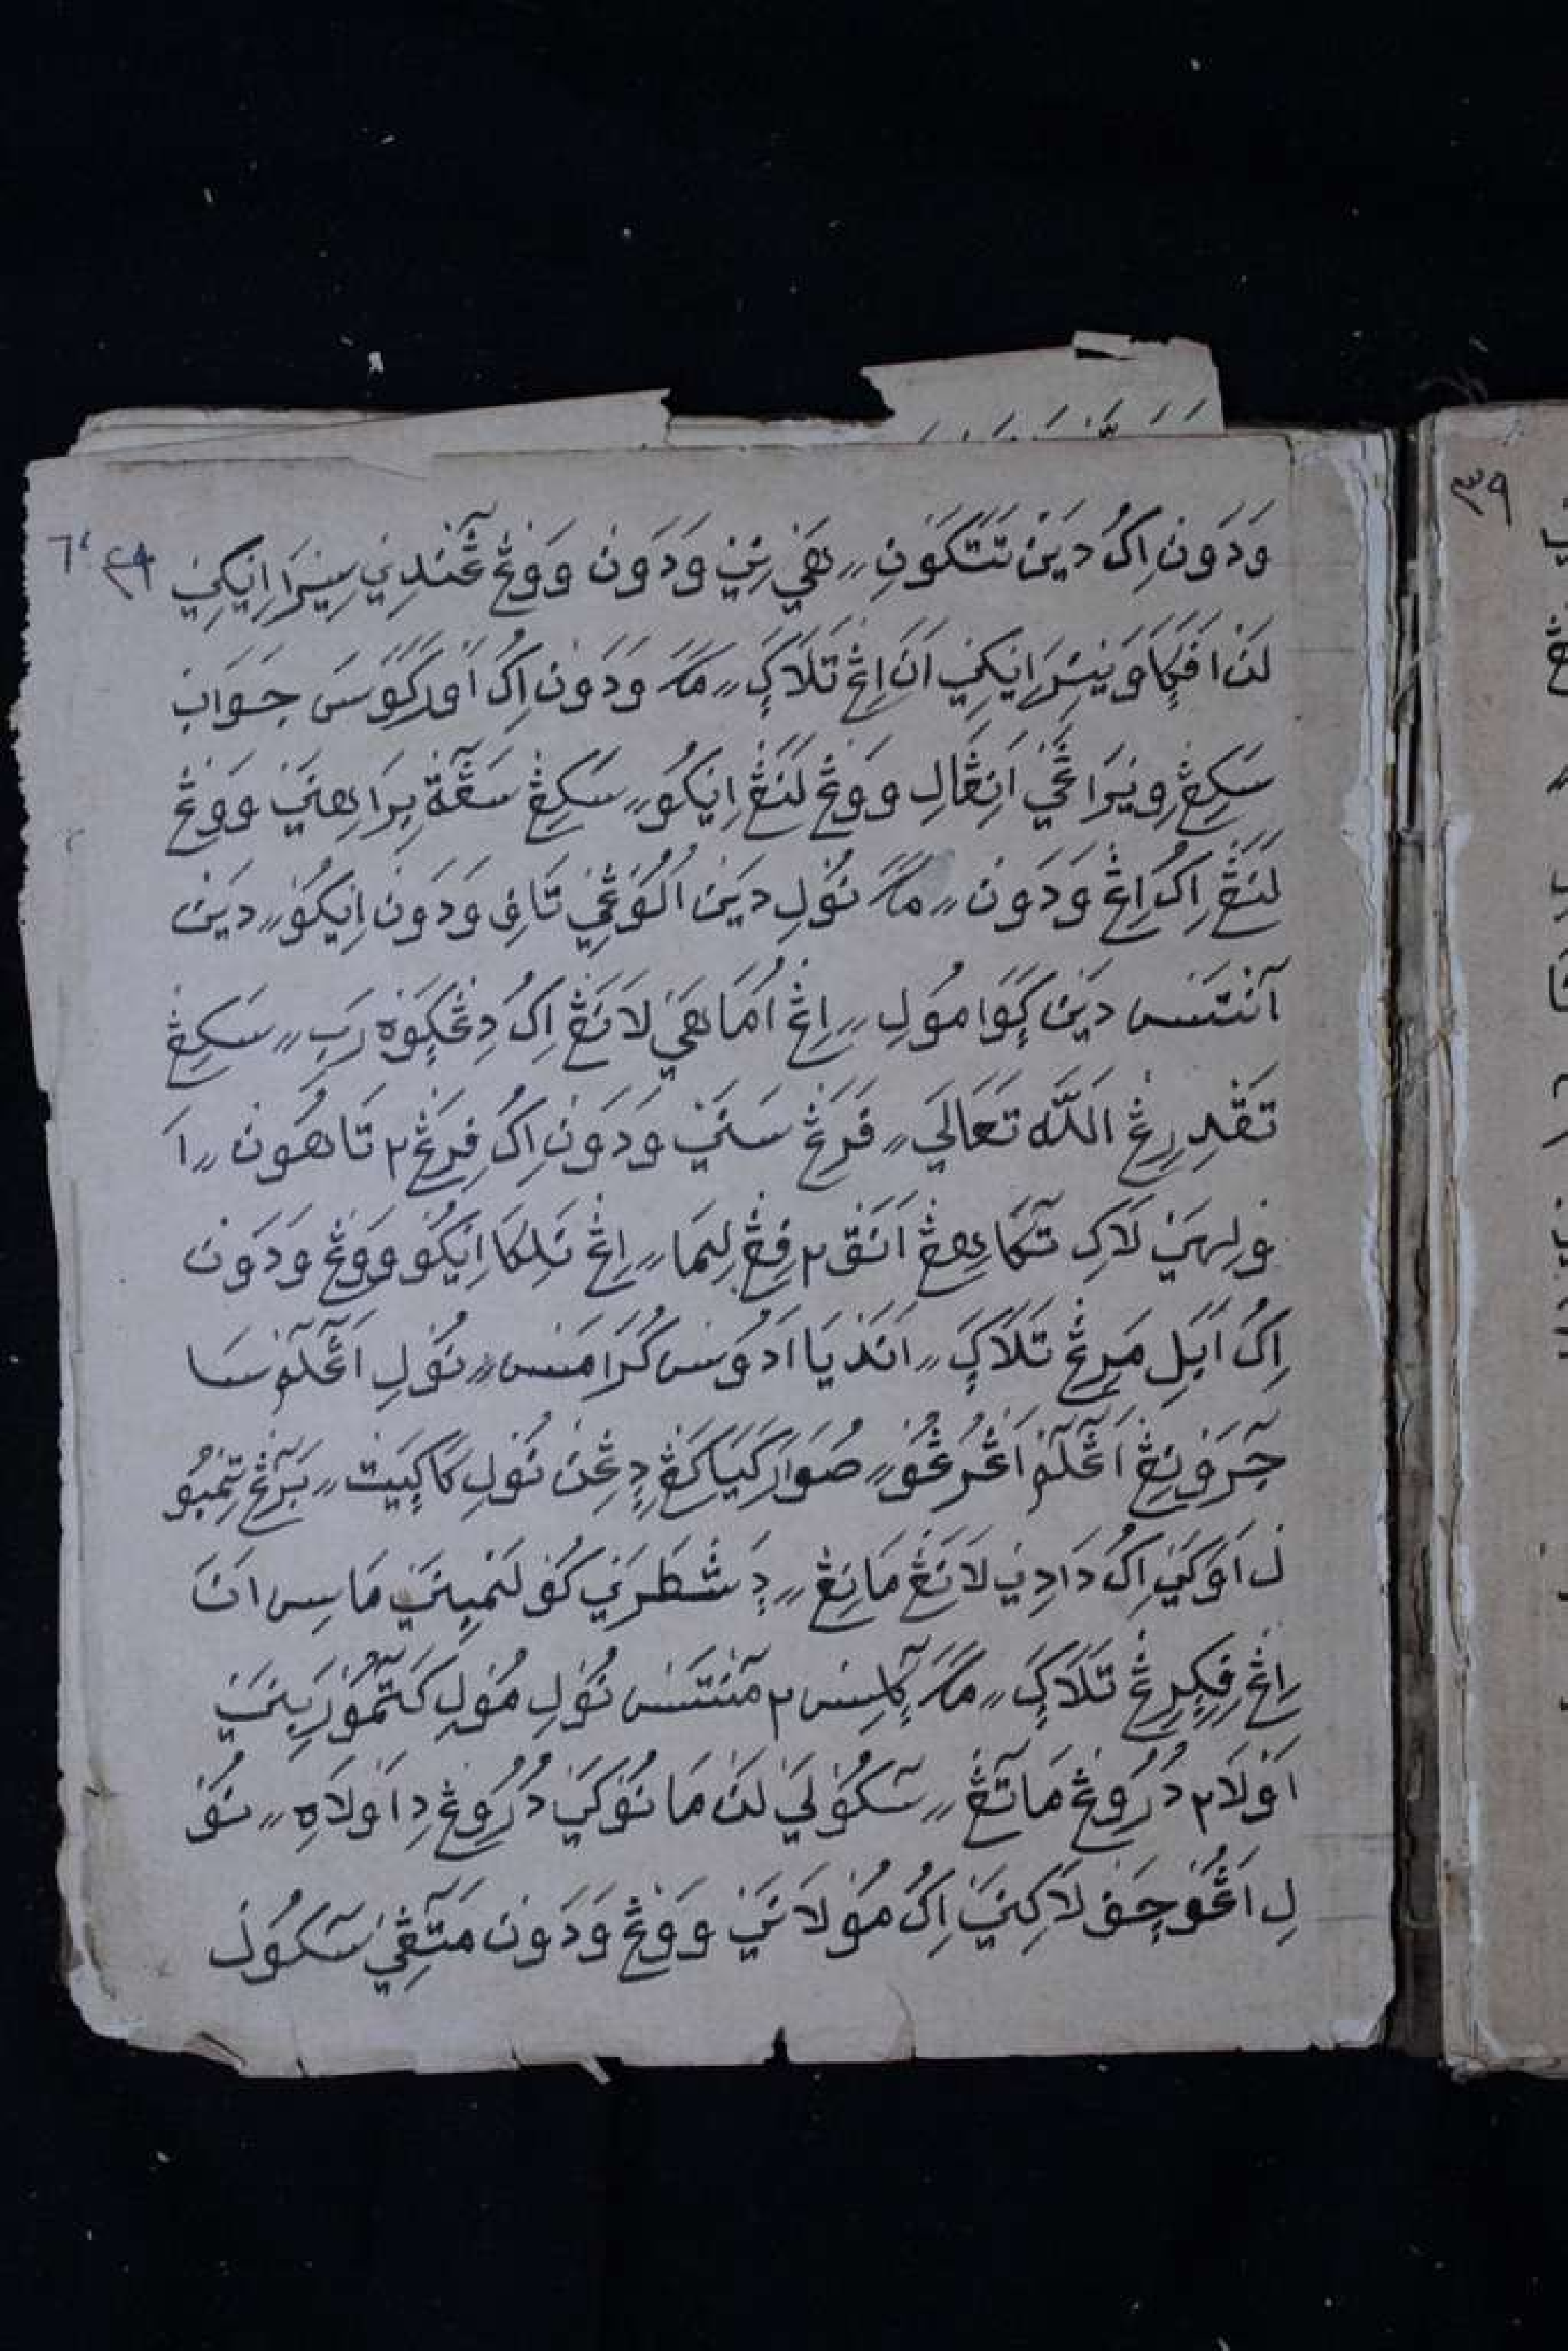 وَدَون اِكُ دَيَن تَتَكَونِ ۔ هَيْ نِنيْ وَدَون وَوڠ ڠَنْدِنيْ سِيْرَا اِيْكيْ
لَن اَفَكَاوَنيْرَ اِيْكيْ اَنَ اِڠ تَلَاݢَ ۔ مَڪَ وَدَون اِكُ اَورَ ݢَوسَ جَوَاب
سَكِڠ وَيْرَاڠيْ اَنِڠَالِ وَوڠ لَنَڠ اِيْكُوْ ۔ سَكِڠ سَڠَة بِرَاهِنيْ وَوڠ
لَنَڠ اِكُ اِڠ وَدَون ۔ مَڪَ نُوْلِ دَيَن اَكُوْڠيْ تَاڤِ وَدَون اِيْكُوْ ۔ دَيَن
اَنْتَس دَيَن ݢَوَا مُولِ ۔ اِڠ اُمَاهيْ لَانَڠ اِكُ دِڠݢَوَه رَبِ ۔ سَكِڠ
تَقْدِرِڠ اَللّٰه تَعَالَي ۔ فَرَڠ سَنيْ وَدَون اِكُ فِرَڠ٢ تَاهُون ۔ اَ
وْلِهيْ لَاكِ تَكَا هِڠ اَنَق٢ فِڠ لِيْمَا ۔ اِڠ نَلِكَا اِيْكُوْ وَوڠ وَدَون
اِكُ اَيَلِ مَرِڠ تَلَاݢَ ۔ اَنَدْيَا اَدُوْس كُرَامَس ۔ نُوْلِ اَڠَلَمْ سَا
جَرَوْنِڠ اَڠَلَمْ اَڠُرَڠُوْ ۔ صُوَارَ كَيَاكَڠ دِڠِن نُوْلِ كَاݢَيَت ۔ بَرَڠ تِمْبُوْ
ل اَوَكيْ اِكُ دَادِيْ لَانَڠ مَانِڠ ۔ دٍ شَطَرَنيْ كُوْلَمْبِنيْ مَاسِ اَنَ
اِڠ فِڪِرِڠ تَلَاݢَ ۔ مَڪَ ݢَلِس٢ مَنْتَس نُوْلِ مُوْلِ كَتَمُوْ رَبِنيْ
اَوْلَا٢ دُرُوڠ مَاتَڠ ۔ سَكُوْليْ لَن مَانُوْكيْ دُرُوڠ دِاَوْلَاهِ ۔ نُوْ
لِ اَڠُوْچَف لَاكِنيْ اِكُ مُوْلَانيْ وَوڠ وَدَون مَتَڠيْ سَكُوْل
٣٩